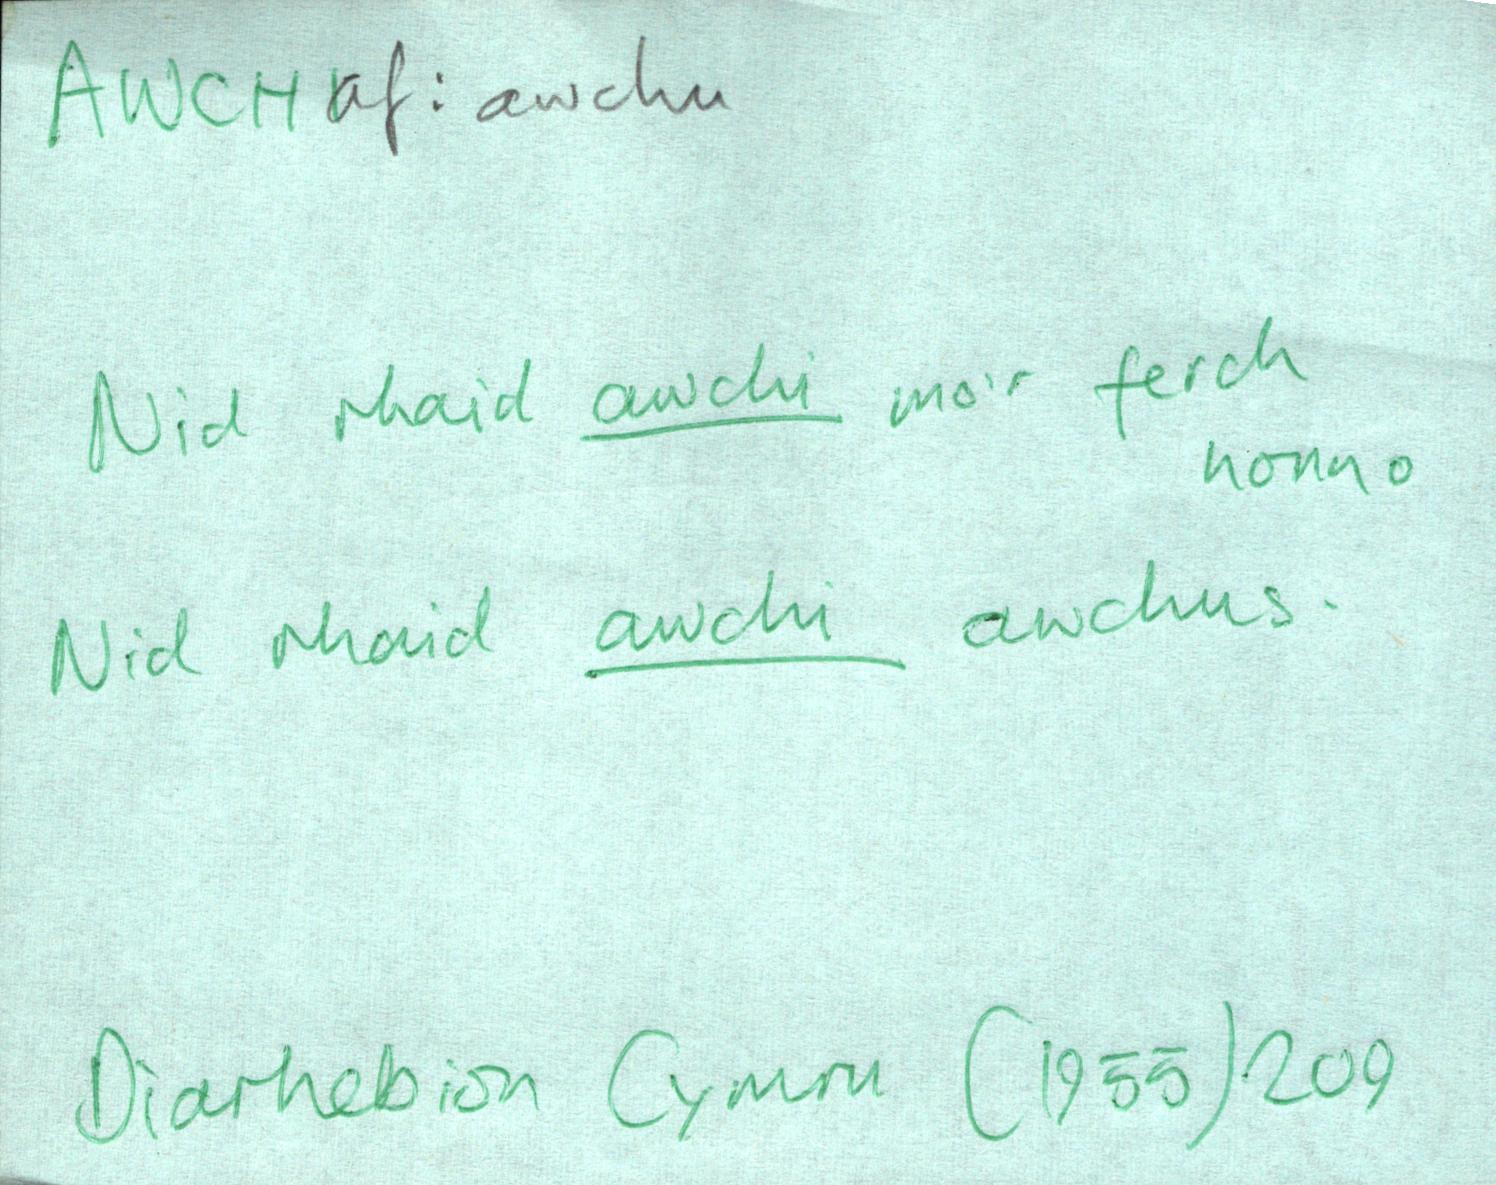 AWCHaf: awchu
Nid rhaid awchi mo'r ferch
honno
Nid rhaid awchi awchus.
Diarhebion Cymru (1955) 209